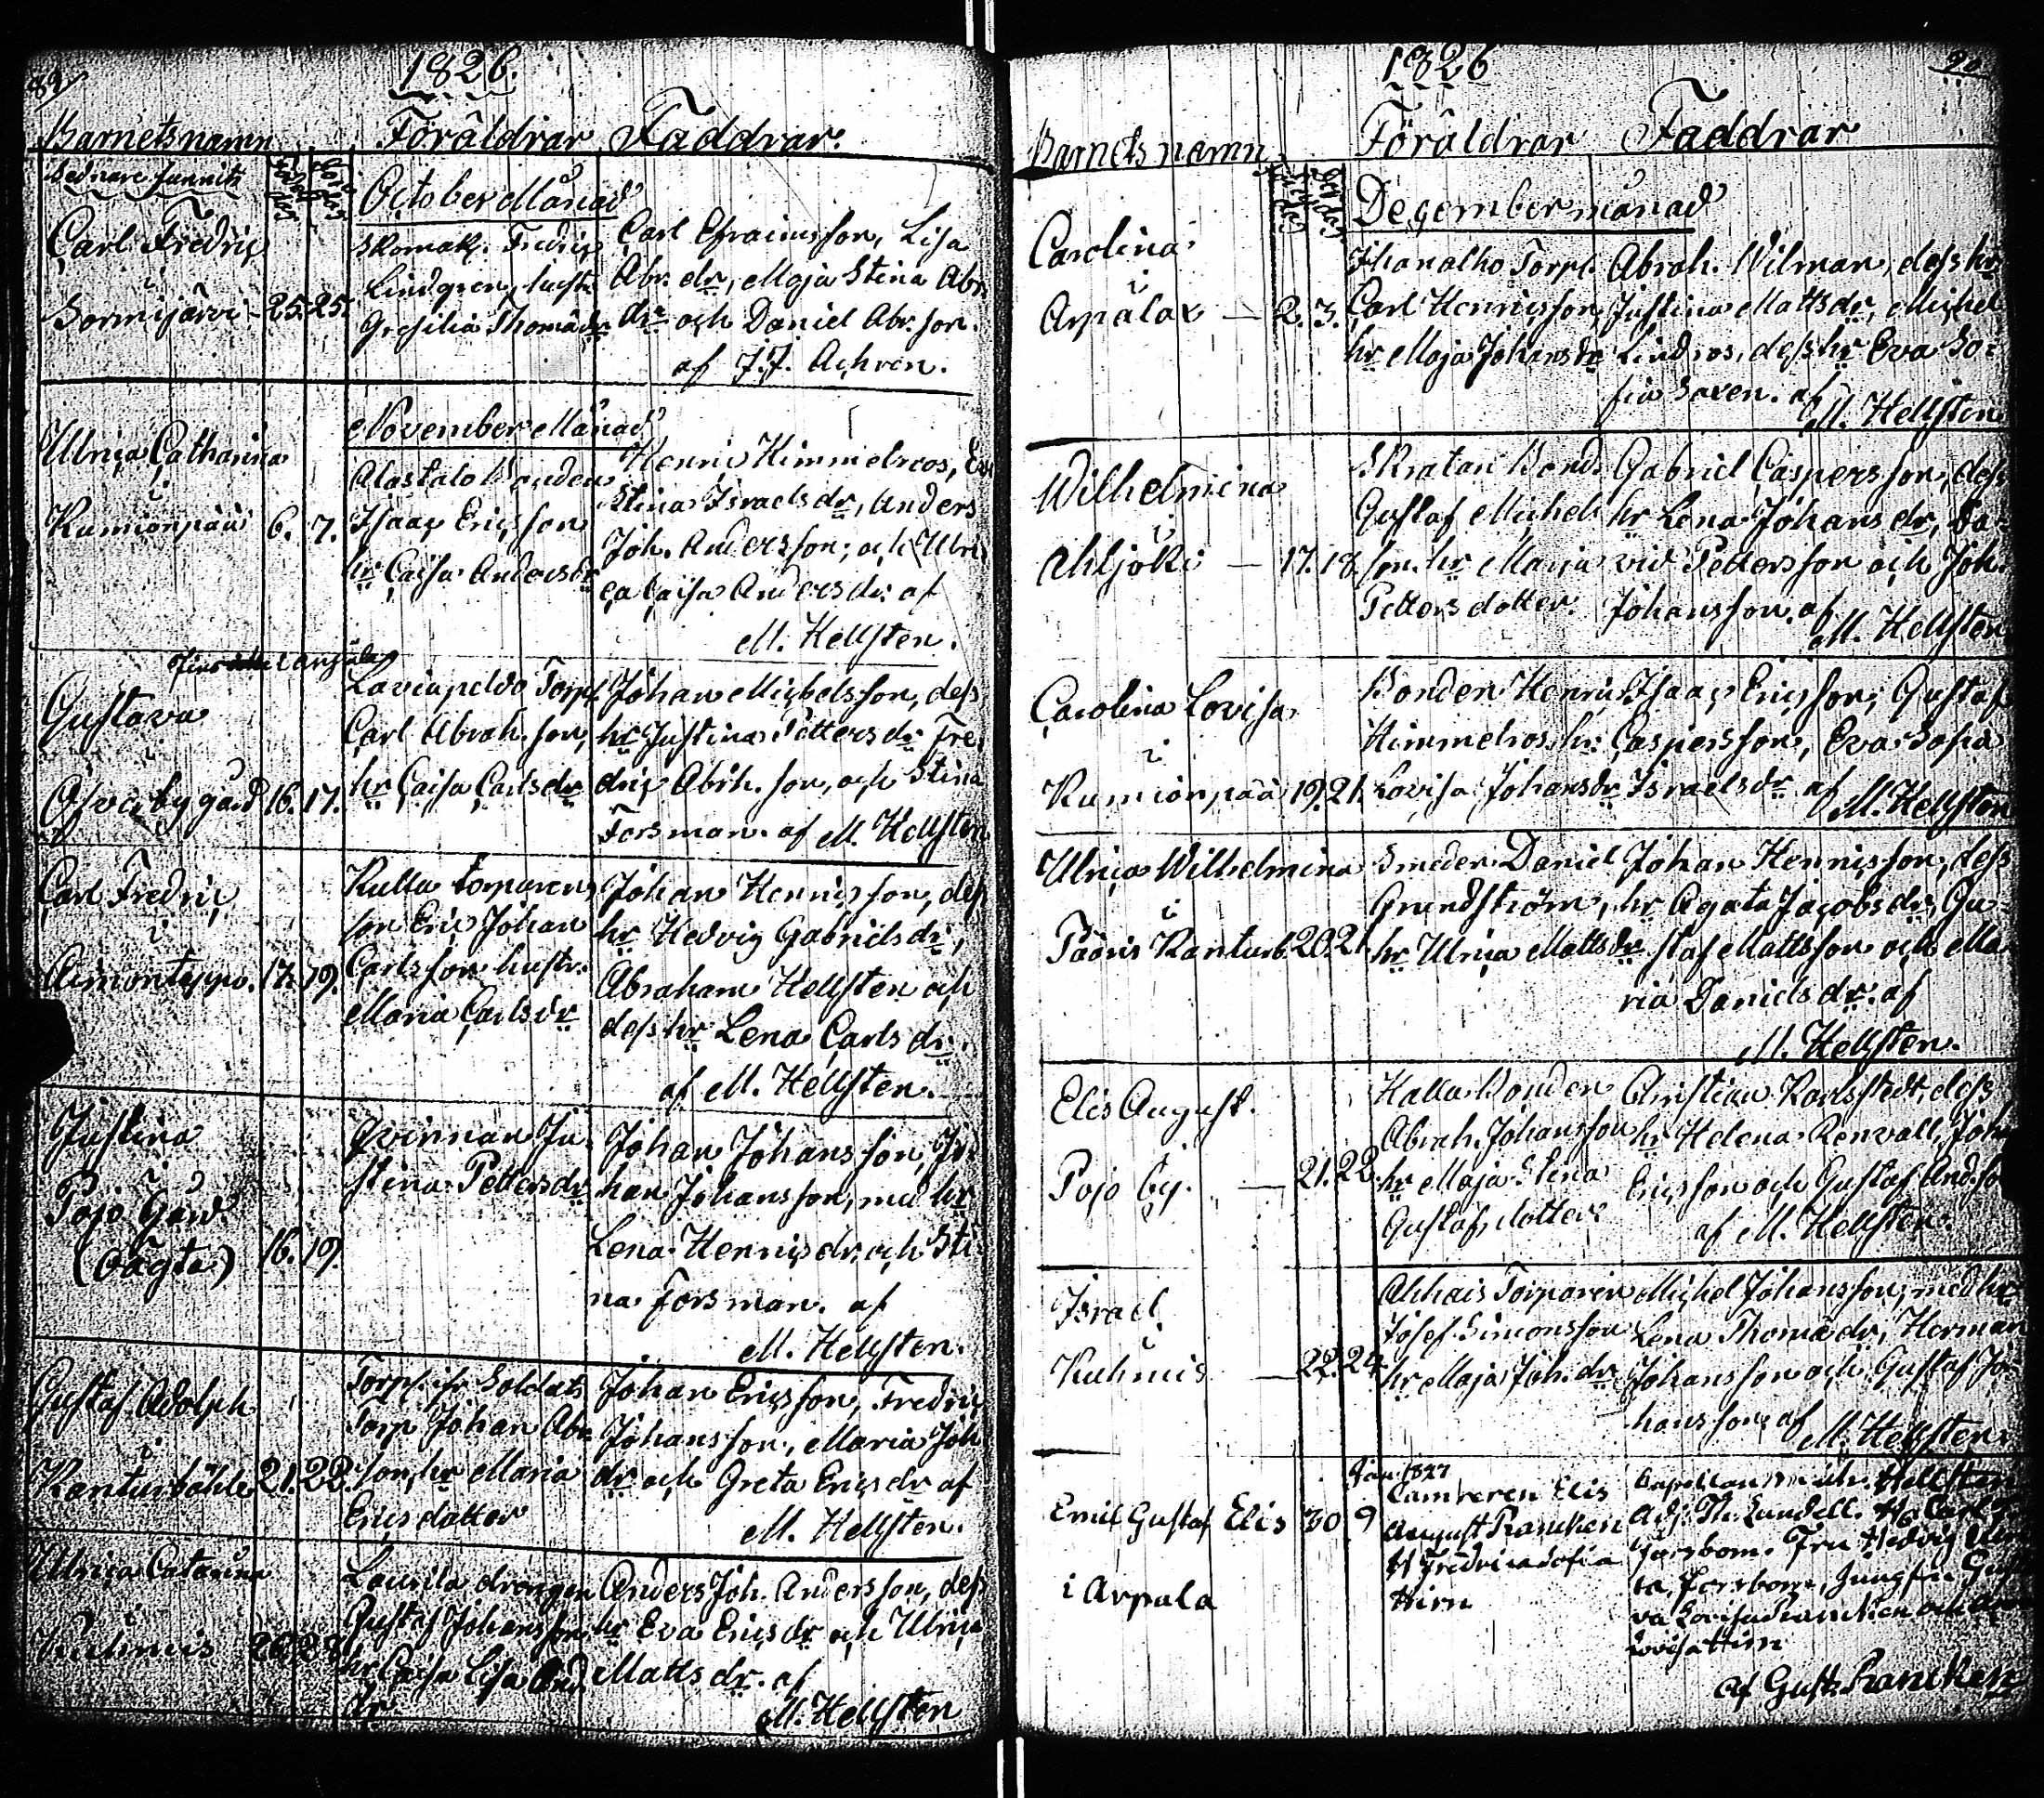 89
1826.
Barnets namn Föräldrar Faddrar.
Sednare funnits
October Månad
Carl Fredric
i
Sormijärvi 25. 25.
Skomak. Fredric
Lindgren, hustr.
Thomædr
Carl Efraimsson, Lisa
Abr. dr, Maja Stina Abr.
dr och Daniel Abr. son.
af J. J. Achren.
November Månad
Ulrica Catharina
i
Kumionpää 6. 7.
Alastalo Bonden
Isaac Ericsson
hr Caisa Andersdr
Henric Himmelroos,
Stina Israelsdr, Anders
Joh. Andersson, och Ulri
ca Caisa Andersdr. af
M. Hellsten.
Gustava
i
by gård 16. 17.
Torp.
Carl Abrah. son,
hr Caisa Carlsdr
Johan Michelsson, dess
hr Justina Pettersdr Fre
dric Abrh. son, och Stina
Forsman. af M. Hellsten
Carl Fredric
i
17. 19.
Kulla torparen,
son Eric Johan
Carlsson hustr.
Maria Carlsdr
Johan Henricsson, dess
hr Hedvig Gabrielsdr,
Abraham Hellsten och
dess hr Lena Carlsdr.
af M. Hellsten.
Justina
i
Pojo Gård.
(oägta) 16. 19.
Qvinnan Ju
stina Pettersdr
Johan Johansson, Jo
han Johansson, med hr
Lena Henricsdr. och Sti
na Forsman. af
M. Hellsten.
Gustaf Adolph
i
Kanturböhle 21. 22.
Torp. ifr. Soldats
Torp Johan Abr.
son, hr Maria
Ericsdotter
Johan Ericsson, Fredric
Johansson, Maria Joh
dr och Greta Ericsdr af
M. Hellsten.
Ulrica Catarina
i
Kuhmis
Laurila drängen
Gustaf Johansson
hr Caisa Lisa And.
dr.
Anders Joh. Andersson, dess
hr Eva Ericsdr och Ulrica
Mattsdr. af
M. Hellsten
90
1826
Barnets namn Föräldrar Faddrar
December månad
Carolina
i
Arpalax 2. 3.
Torp.
Carl Henricsson,
hr Maja Johansdr
Abrah. Wilman, dess hr
Justina Mattsdr, Michel
Lindros, dess hr Eva So
fia Saxen. af
M. Hellsten
Wilhelmina
i
Ahljoki 17. 18.
Skratari Bond.
Gustaf Michels
son. hr Maria
Petters dotter.
Gabriel Caspersson, dess
hr Lena Johansdr, Da
vid Pettersson och Joh.
Johansson. af
M. Hellsten
Carolina Lovisa
i
Kumionpää 19. 21.
Bonden Henric
Himmelros, hr.
Lovisa Johansdr
Isaac Ericsson, Gustaf
Caspersson, Eva Sofia
Israelsdr af
M. Hellsten
Ulrica Wilhelmina
i
Pääris Kanturb. 20. 21.
Smeden Daniel
Grundström,
hr Ulrica Mattsdr
Johan Henricsson, dess
hr Agata Jacobsdr, Gu
staf Mattsson och Ma
ria Danielsdr. af
M. Hellsten.
Elis August.
Pojo by. 21. 22.
Halla Bonden
Abrah. Johansson
hr Maja Stina
Gustafs dotter
Christian Karlstedt, dess
hr Helena Renvall, Joh
Ericsson och Gustaf And.so
af M. Hellsten.
Israel
i
Kuhmis 22. 24.
Ahhais Torparen
Josef Simonsson
hr Maja Joh. dr
Michel Johansson, med hr
Lena Thomædr, Herman
Johansson och Gustaf Jo
hansson. af
M. Hellsten.
Emil Gustaf Elis 30 9
i Arpala
Jan. 1827
Camreren Elis
August Rancken
H Fredrica Sofia
Hirn
Capellan Mich. Hellsten
Adj. Th. Lundell. H. Carl
Forsbom. Fru Hedvig Ulri
ca Forsbom, Jungfru Gus
va Lovisa Rancken och
Lovisa Hirn
af Gust. Rancken